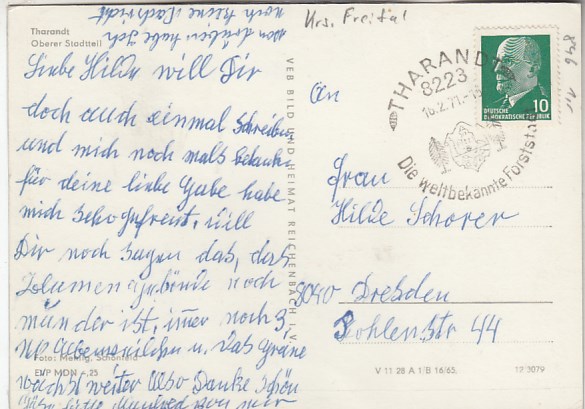 von drüben habe Ich
noch keine Nachricht
Krs. Freital
Tharandt
Oberer Stadtteil
Liebe Hilde will Dir
doch auch einmal schreiben
und mich noch mals bedanken
für deine liebe Gabe habe
mich sehr gefreut, will
Dir noch sagen das, das
Blumengebinde noch
munder ist, imer noch 3,
Alpenveilchen u. das Grüne
wächst weiter Also Danke schön
von mir
Foto: Mehlig, Schönfeld
EVP MDN -,25
VEB BILD UND HEIMAT REICHENBACH I. V.
THARANDT
8223
16.2.71
Die weltbekannte Forststadt
DEUTSCHE
DEMOKRATISCHE REPUBLIK
10
An
Frau
Hilde Schorer
8040 Dresden
Bohlenstr 44
V 11 28 A 1/B 16/65